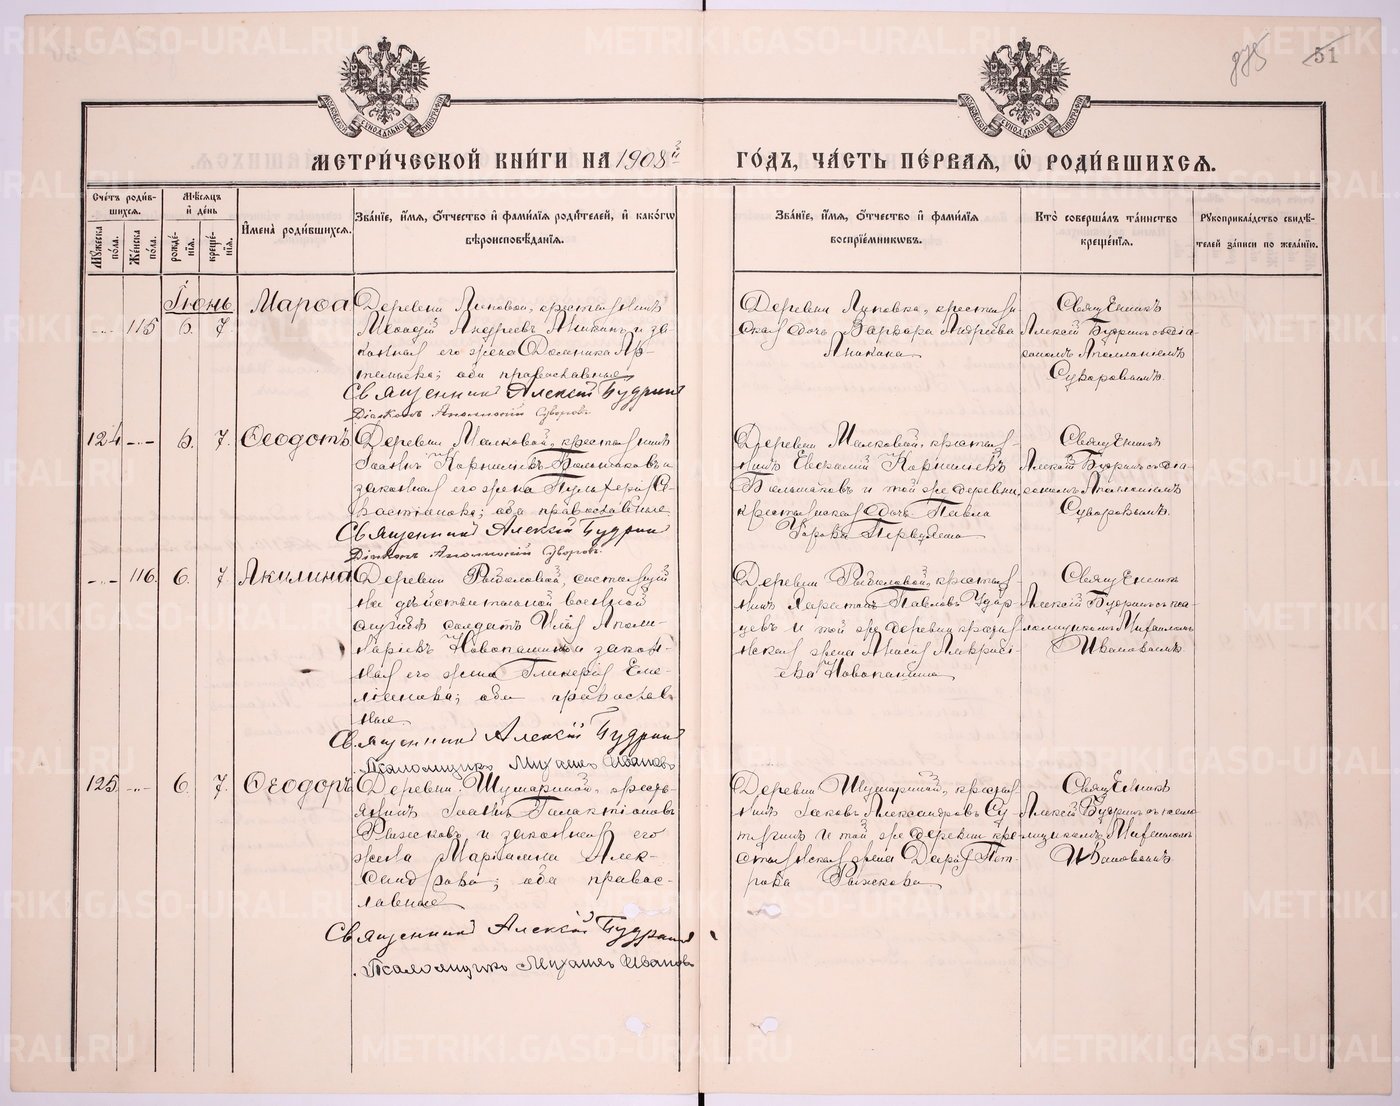 875 51
МЕТРИ́ЧЕСКОЙ КНИ́ГИ НА 1908й ГО́ДЪ, ЧА́СТЬ ПЕ́РВАЯ, Ѡ҆ РОДИ́ВШИХСѦ.
Сче́тъ роди́в-
шихся.
Мꙋ́жеска по́ла.
Же́нска по́ла.
Мѣ́сяцъ
и҆ де́нь
рожде́-
нїя.
креще́-
нїя.
И҆мена̀ роди́вшихся.
Зва́нїе, и҆́мя, ѻ҆́тчество и҆ фами́лїя роди́телей, и҆ како́гѡ
вѣроисповѣ́данїя.
Зва́нїе, и҆́мя, ѻ҆́тчество и҆ фами́лїя
воспрїе́мникѡвъ.
Кто̀ соверша́лъ та́инство
креще́нїя.
Рꙋкоприкла́дство свидѣ́-
телей за́писи по жела́нїю.
Іюнь
115 6. 7
Марѳа
Деревни Луковой, крестьянинъ
Меѳодій Андреевъ Аникинъ и за-
конная его жена Домника Ар-
темьева; оба православные
Священник Алексій Будрин
Діаконъ Аполлоній Суворовъ
Деревни Луковки, крестьян
ская дочь Варвара Андреева
Аникина
Священникъ
Алексій Будринъ съ діа-
кономъ Аполлоніемъ
Суворовымъ.
124 6. 7.
Ѳеодотъ
Деревни Малковой, крестьянинъ
Іоаннъ Корниліевъ Большаковъ и
законная его жена Пульхерія
оба православные
Священник Алексій Будрин
Діаконъ Аполлоній Суворовъ.
Деревни Малковой, крестья-
нинъ Евсевій Корниліевъ
Большаковъ и той же деревни,
крестьянская дочь Павла
Священникъ
Алексій Будринъ съ діа-
кономъ Аполлоніемъ
Суворовымъ.
116. 6. 7.
Акилина
Деревни Рыболовой, состоящій
на дѣйствительной военной
службѣ солдатъ Илья Аполи-
наріевъ Новопашинъ и закон-
ная его жена Гликерія Еме-
ліанова; оба православ-
ные
Священник Алексій Будрин
Псаломщикъ Михаилъ Ивановъ
Деревни Рыболовой, крестья-
нинъ Харитонъ Павловъ Удар
цевъ и той же деревни крестья-
нская жена Анисія Лавренті-
ева Новопашина
Священникъ
Алексій Будринъ съ пса-
ломщикомъ Михаиломъ
Ивановымъ.
125. 6. 7.
Ѳеодоръ
Деревни Шушариной, кресть-
янинъ Іоаннъ Галактіоновъ
Рыжковъ, и законная его
жена Маріамна Алек-
сандрова; оба правос-
лавные
Священник Алексій Будрин
Псаломщикъ Михаилъ Ивановъ
Деревни Шушариной, крестья
нинъ Іаковъ Александровъ Су-
и той же деревни кре-
стьянская жена Дарія Пет-
рова Рыжкова
Священникъ
Алексій Будринъ съ псало-
мщикомъ Михаиломъ
Ивановымъ
METRIKI.GASO-URAL.RU